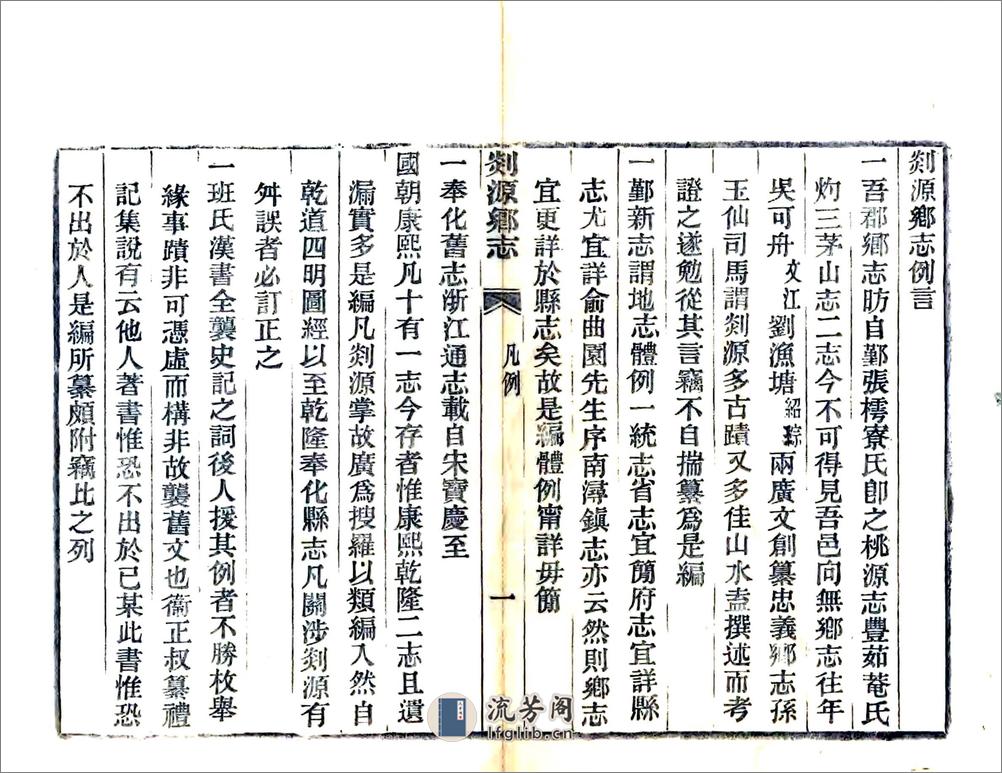 剡源鄉志例言
一吾郡鄉志昉自鄞張樗寮氏卽之桃源志豐茹菴氏
灼三茅山志二志今不可得見吾邑向無鄉志往年
吳可舟文江劉漁塘紹琮兩廣文創纂忠義鄉志孫
玉仙司馬謂剡源多古蹟又多佳山水盍撰述而考
證之遂勉從其言竊不自揣纂爲是編
一鄞新志謂地志體例一統志省志宜簡府志宜詳縣
志尤宜詳俞曲園先生序南潯鎮志亦云然則鄉志
宜更詳於縣志矣故是編體例甯詳毋簡
剡源鄉志 凡例 一
一奉化舊志浙江通志載自宋寶慶至
國朝康熙凡十有一志今存者惟康熙乾隆二志且遺
漏實多是編凡剡源掌故廣爲搜羅以類編入然自
乾道四明圖經以至乾隆奉化縣志凡關涉剡源有
舛誤者必訂正之
一班氏漢書全襲史記之詞後人援其例者不勝枚舉
緣事蹟非可憑虛而構非故襲舊文也衞正叔纂禮
記集說有云他人著書惟恐不出於已某此書惟恐
不出於人是編所纂頗附竊比之列
流芳阁
lfglib.cn